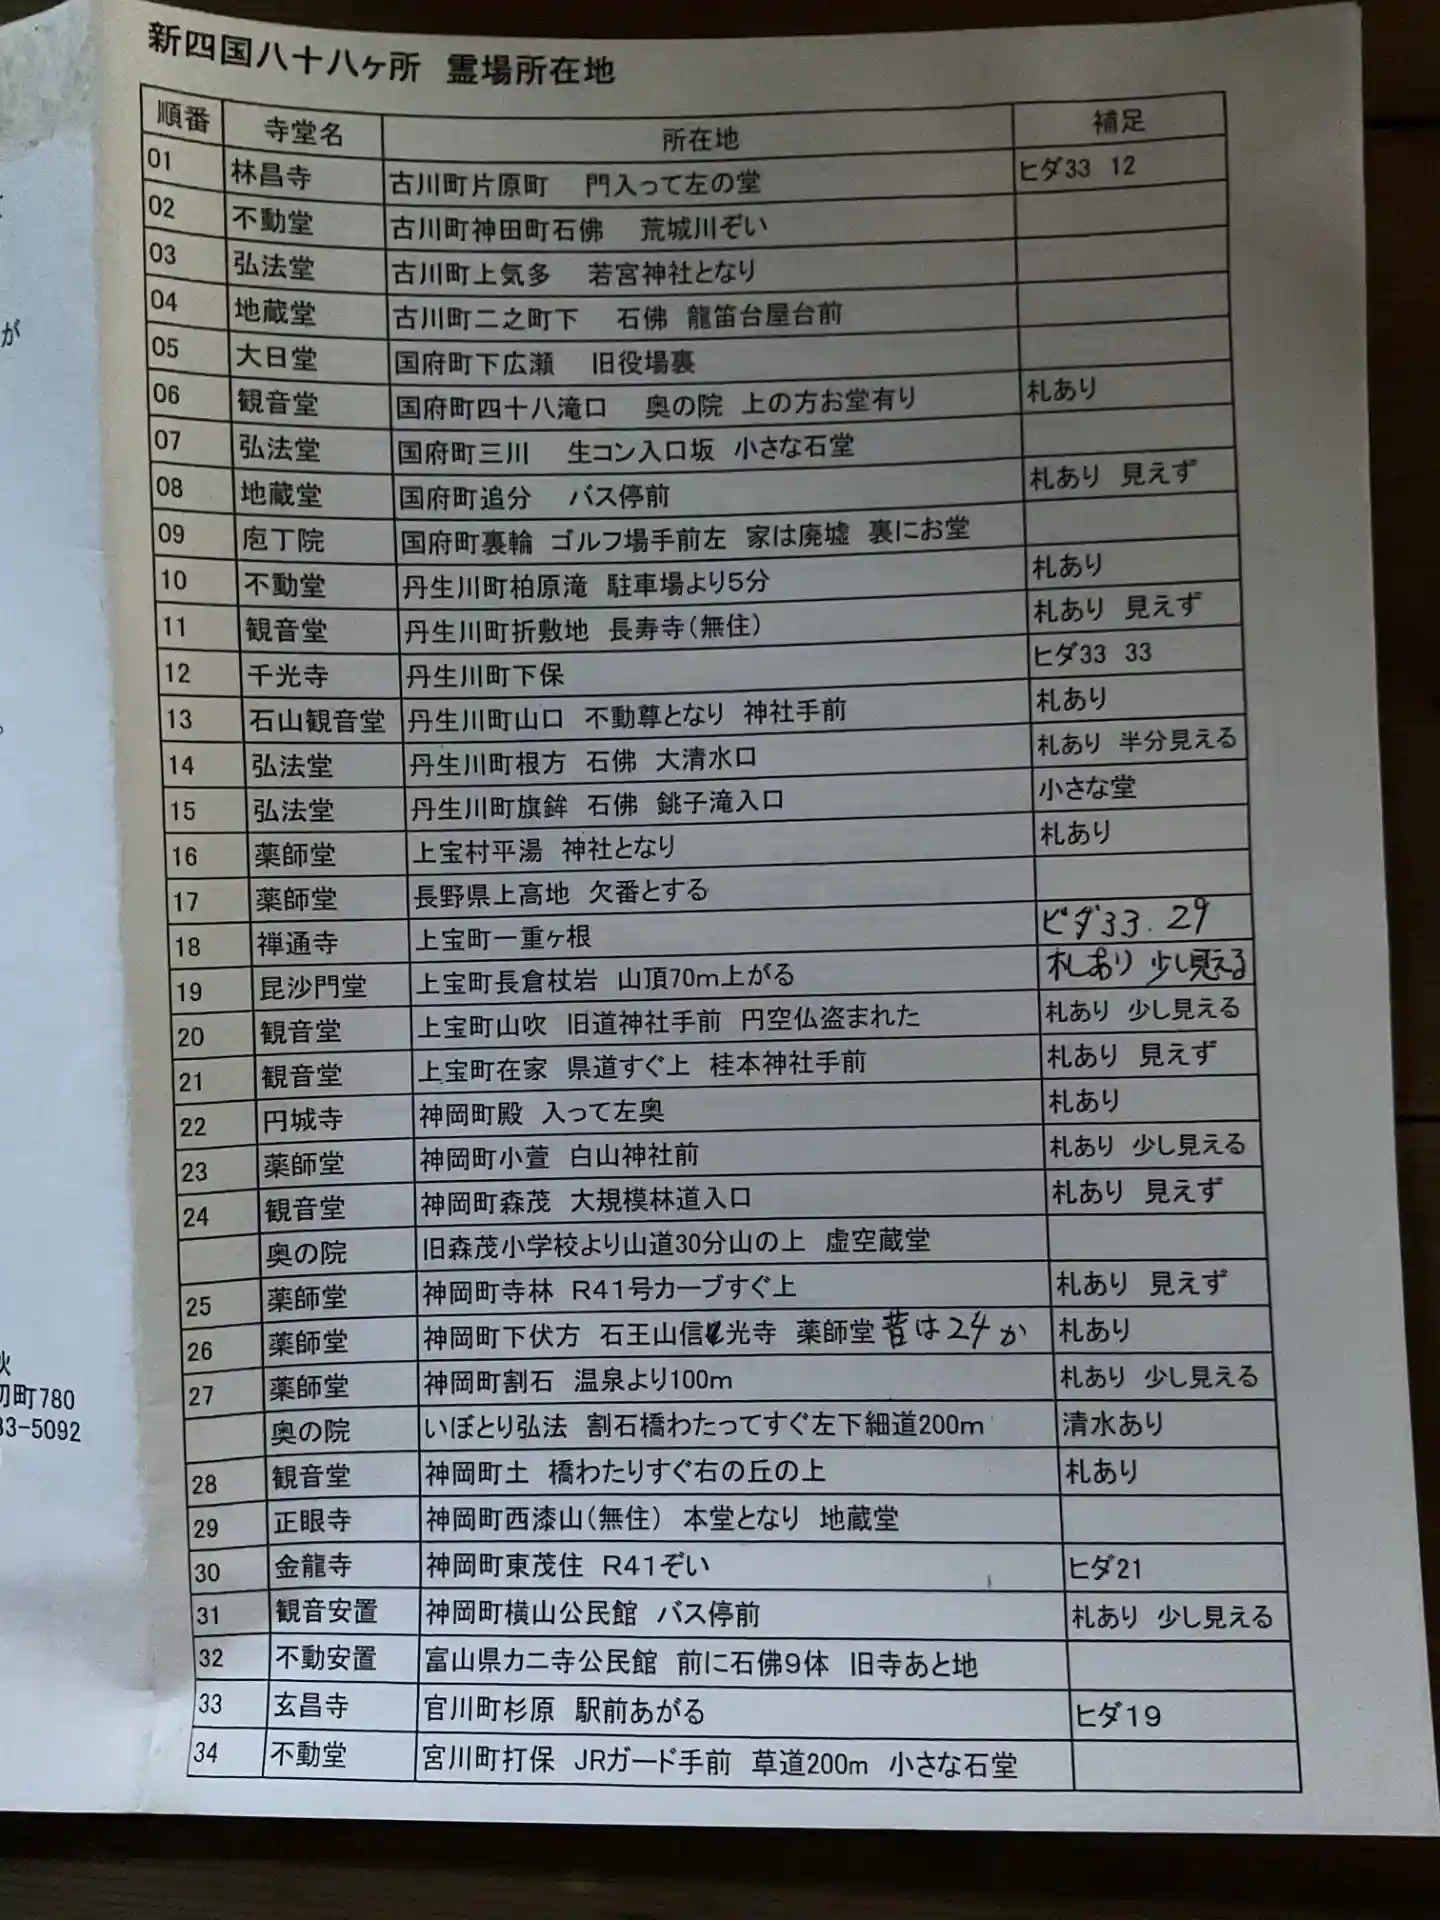 新四国八十八ヶ所 霊場所在地
順番 寺堂名 所在地 補足
01 林昌寺 古川町片原町 門入って左の堂 ヒダ33 12
02 不動堂 古川町神田町石佛 荒城川ぞい
03 弘法堂 古川町上気多 若宮神社となり
04 地蔵堂 古川町二之町下 石佛 龍笛台屋台前
05 大日堂 国府町下広瀬 旧役場裏
06 観音堂 国府町四十八滝口 奥の院 上の方お堂有り 札あり
07 弘法堂 国府町三川 生コン入口坂 小さな石堂
08 地蔵堂 国府町追分 バス停前 札あり 見えず
09 庖丁院 国府町裏輪 ゴルフ場手前左 家は廃墟 裏にお堂
10 不動堂 丹生川町柏原滝 駐車場より5分 札あり
11 観音堂 丹生川町折敷地 長寿寺(無住) 札あり 見えず
12 千光寺 丹生川町下保 ヒダ33 33
13 石山観音堂 丹生川町山口 不動尊となり 神社手前 札あり
14 弘法堂 丹生川町根方 石佛 大清水口 札あり 半分見える
15 弘法堂 丹生川町旗鉾 石佛 銚子滝入口 小さな堂
16 薬師堂 上宝村平湯 神社となり 札あり
17 薬師堂 長野県上高地 欠番とする
18 禅通寺 上宝町一重ヶ根 ヒダ33.29
19 昆沙門堂 上宝町長倉杖岩 山頂70m上がる 札あり 少し見える
20 観音堂 上宝町山吹 旧道神社手前 円空仏盗まれた 札あり 少し見える
21 観音堂 上宝町在家 県道すぐ上 桂本神社手前 札あり 見えず
22 円城寺 神岡町殿 入って左奥 札あり
23 薬師堂 神岡町小萱 白山神社前 札あり 少し見える
24 観音堂 神岡町森茂 大規模林道入口 札あり 見えず
奥の院 旧森茂小学校より山道30分山の上 虚空蔵堂
25 薬師堂 神岡町寺林 R41号カーブすぐ上 札あり 見えず
26 薬師堂 神岡町下伏方 石王山信光寺 薬師堂 昔は24か 札あり
27 薬師堂 神岡町割石 温泉より100m 札あり 少し見える
奥の院 いぼとり弘法 割石橋わたってすぐ左下細道200m 清水あり
28 観音堂 神岡町土 橋わたりすぐ右の丘の上 札あり
29 正眼寺 神岡町西漆山(無住) 本堂となり 地蔵堂
30 金龍寺 神岡町東茂住 R41ぞい ヒダ21
31 観音安置 神岡町横山公民館 バス停前 札あり 少し見える
32 不動安置 富山県カニ寺公民館 前に石佛9体 旧寺あと地
33 玄昌寺 官川町杉原 駅前あがる ヒダ19
34 不動堂 宮川町打保 JRガード手前 草道200m 小さな石堂
が
町780
33-5092